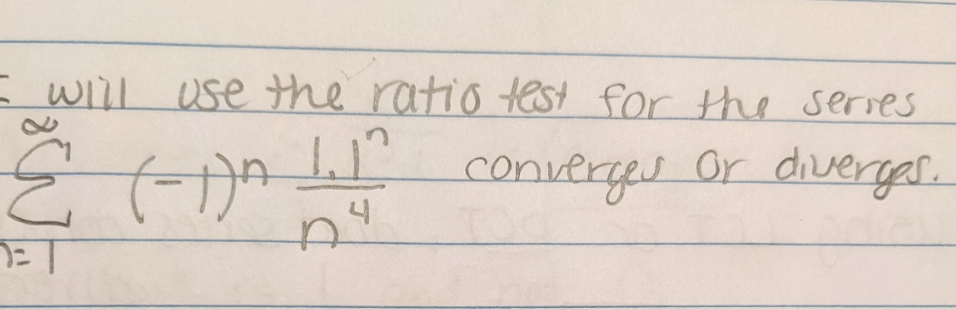 I will use the ratio test for the series
∞
∑ (-1)^n 1.1^n / n^4 converges or diverges.
n=1